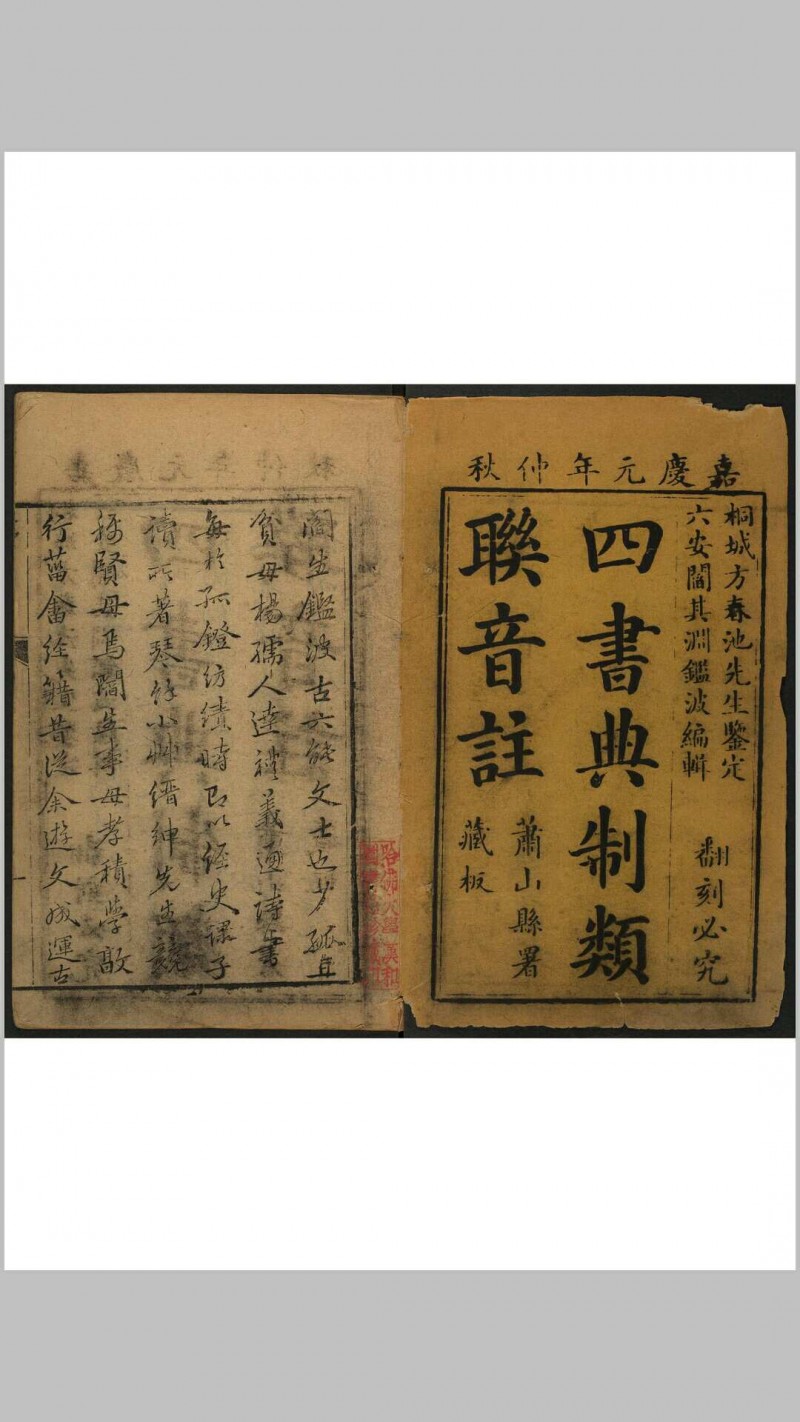 嘉慶元年仲秋
桐城方春池先生鑒定
六安閻其淵鑑波編輯
翻刻必究
四書典制類
聯音註
蕭山縣署
藏板
閻生鑑波古六能文士也少孤且
貧母楊孺人達禮義通詩書
每於孤鐙紡績時即以經史課子
讀所著琴竹小艸縉紳先生競
稱賢母焉閻生事母孝積學敦
行菑畬經籍昔從余遊文成運古